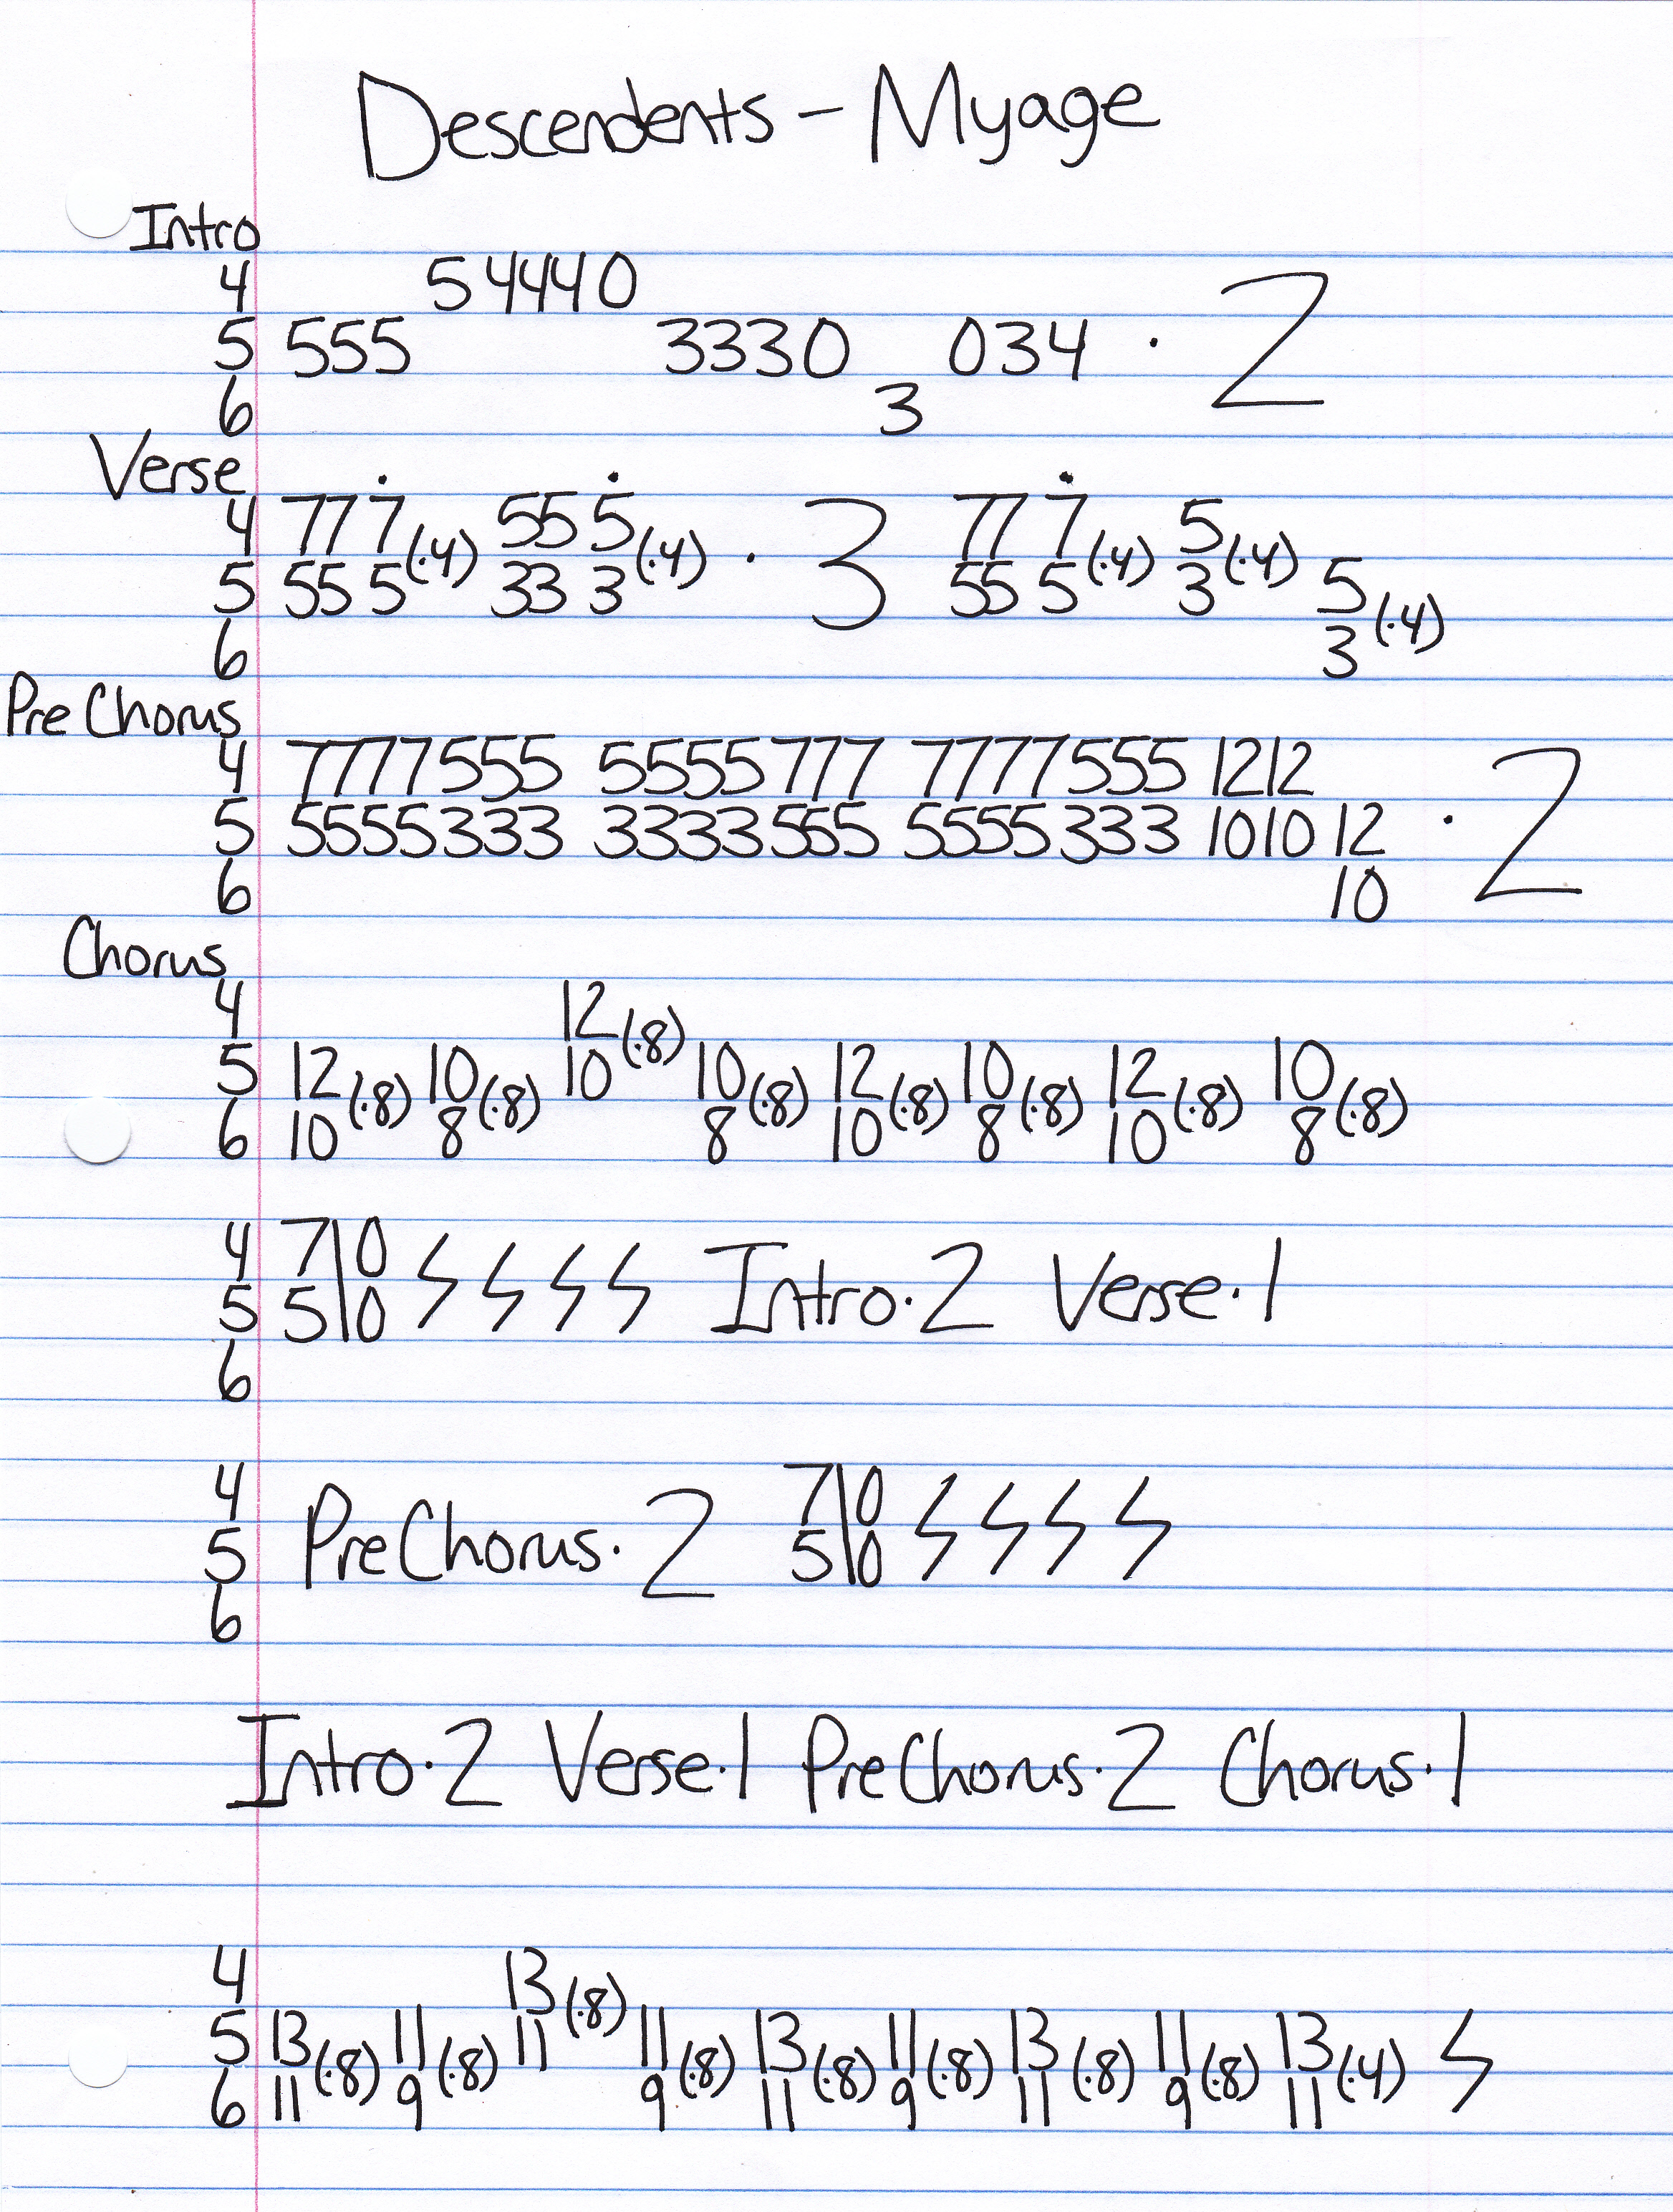 Descendents - Myage
Intro
4 5 4 4 4 0
5 555 3330 034 · 2
6 3
Verse
4 77 7 (·4) 55 5 (·4) · 3 77 7 (·4) 5 (·4)
5 55 5 33 3 55 5 3 5 (·4)
6 3
Pre Chorus
4 7777555 5555777 7777555 1212
5 5555333 3333555 5555333 1010 12 · 2
6 10
Chorus
4 12 (·8)
5 12 (·8) 10 (·8) 10 10 (·8) 12 (·8) 10 (·8) 12 (·8) 10 (·8)
6 10 8 8 10 8 10 8
4 7\0
5 5\0 Intro·2 Verse·1
6
4 7\0
5 PreChorus·2 5\0
6
Intro·2 Verse·1 PreChorus·2 Chorus·1
4 13 (·8)
5 13 (·8) 11 (·8) 11 11 (·8) 13 (·8) 11 (·8) 13 (·8) 11 (·8) 13 (·4)
6 11 9 9 11 9 11 9 11